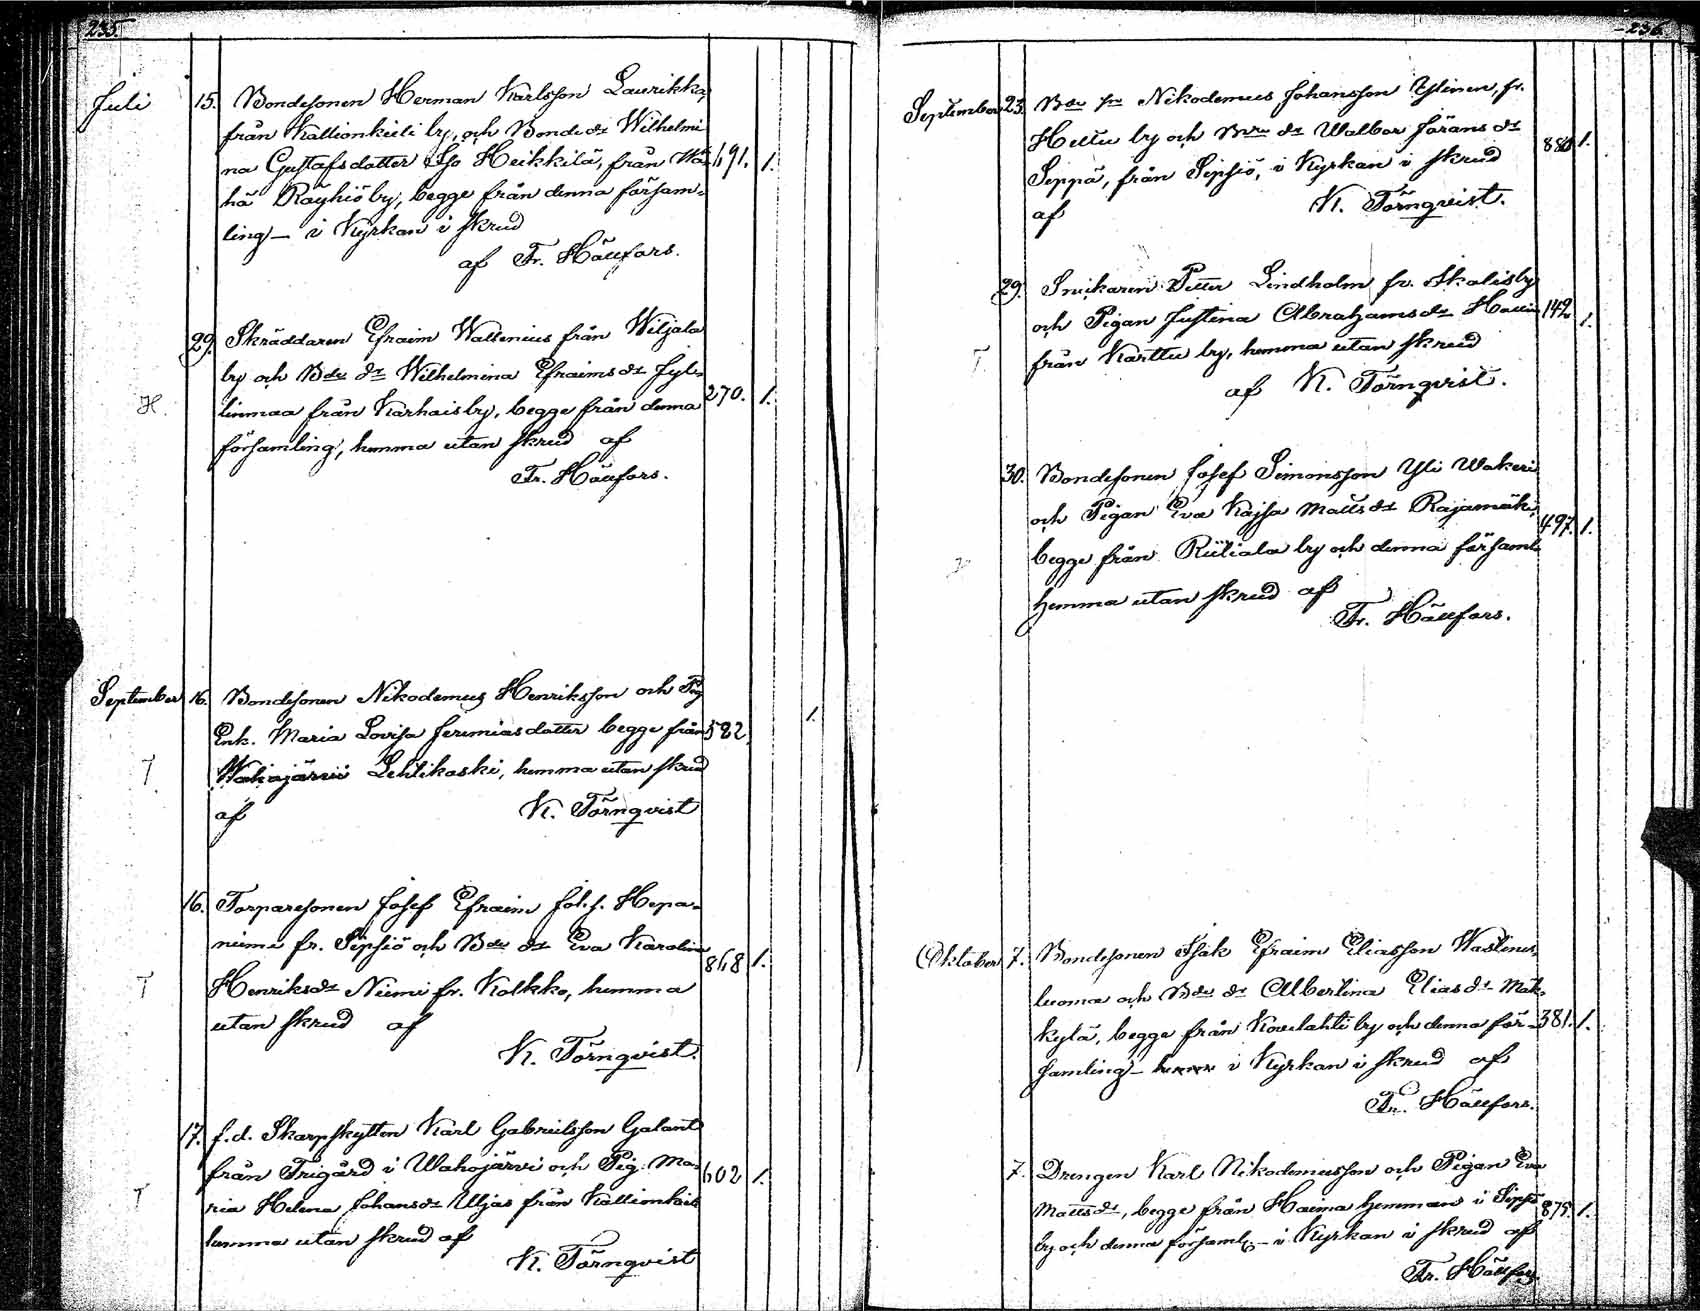 235.
Juli 15. Bondesonen Herman Karlsson Laurikka,
från Kallionkieli by, och Bonde dr Wilhelmi
na Gustafsdotter Iso Heikkilä, från Wä- 691. 1.
hä Röyhiö by, begge från denna försam-
ling – i Kyrkan i skrud
af Fr. Hällfors.
29. Skräddaren Efraim Wallenius från Wiljala
by och Bde dr Wilhelmina Efraims dr Jyl-
H. linmaa från Karhais by, begge från denna 270. 1.
församling, hemma utan skrud af
Fr. Hällfors.
September 16. Bondesonen Nikodemus Henriksson och Pig
Enk. Maria Lovisa Jeremiasdotter begge från 582. 1.
T Wahojärvi Lehtikoski, hemma utan skrud
af K. Törnqvist
16. Torparesonen Josef Efraim Joh.s. Hepa-
niemi fr. Sipsiö och Bde dr Eva Karolina 868 1.
T Henriksdr Niemi fr. Kolkko, hemma
utan skrud af
K. Törnqvist.
17. f.d. Skarpskytten Karl Gabrielsson Galant
från Frigård i Wahojärvi och Pig. Ma- 602 1.
T ria Helena Johansdr Uljas från Kallionkieli
hemma utan skrud af
K. Törnqvist
236.
September 23. Bde sn Nikodemus Johansson Ylinen, fr.
Hettu by och Bde dr Walbor Jörans dr 880 1.
Seppä, från Sipsiö, i Kyrkan i skrud
af K. Törnqvist.
29. Snickaren Petter Lindholm fr. Skalisby
och Pigan Justina Abrahams dr 149. 1.
T från Karttu by, hemma utan skrud
af K. Törnqvist.
30. Bondesonen Josef Simonsson Yli Wakeri
och Pigan Eva Kajsa Matts dr Rajamäki, 497. 1.
begge från Riitiala by och denna församl.
hemma utan skrud af
Fr. Hällfors.
Oktober 7. Bondesonen Isak Efraim Eliasson Wastines-
luoma och Bde dr Albertina Elias dr Mäk-
kylä, begge från Kovelahti by och denna för- 381. 1.
samling – i Kyrkan i skrud af
Fr. Hällfors.
7. Drengen Karl Nikodemusson och Pigan Eva
Mattsdr, begge från Haima hemman i Sipsiö 875. 1.
by och denna församl. – i Kyrkan i skrud af
Fr. Hällfors.